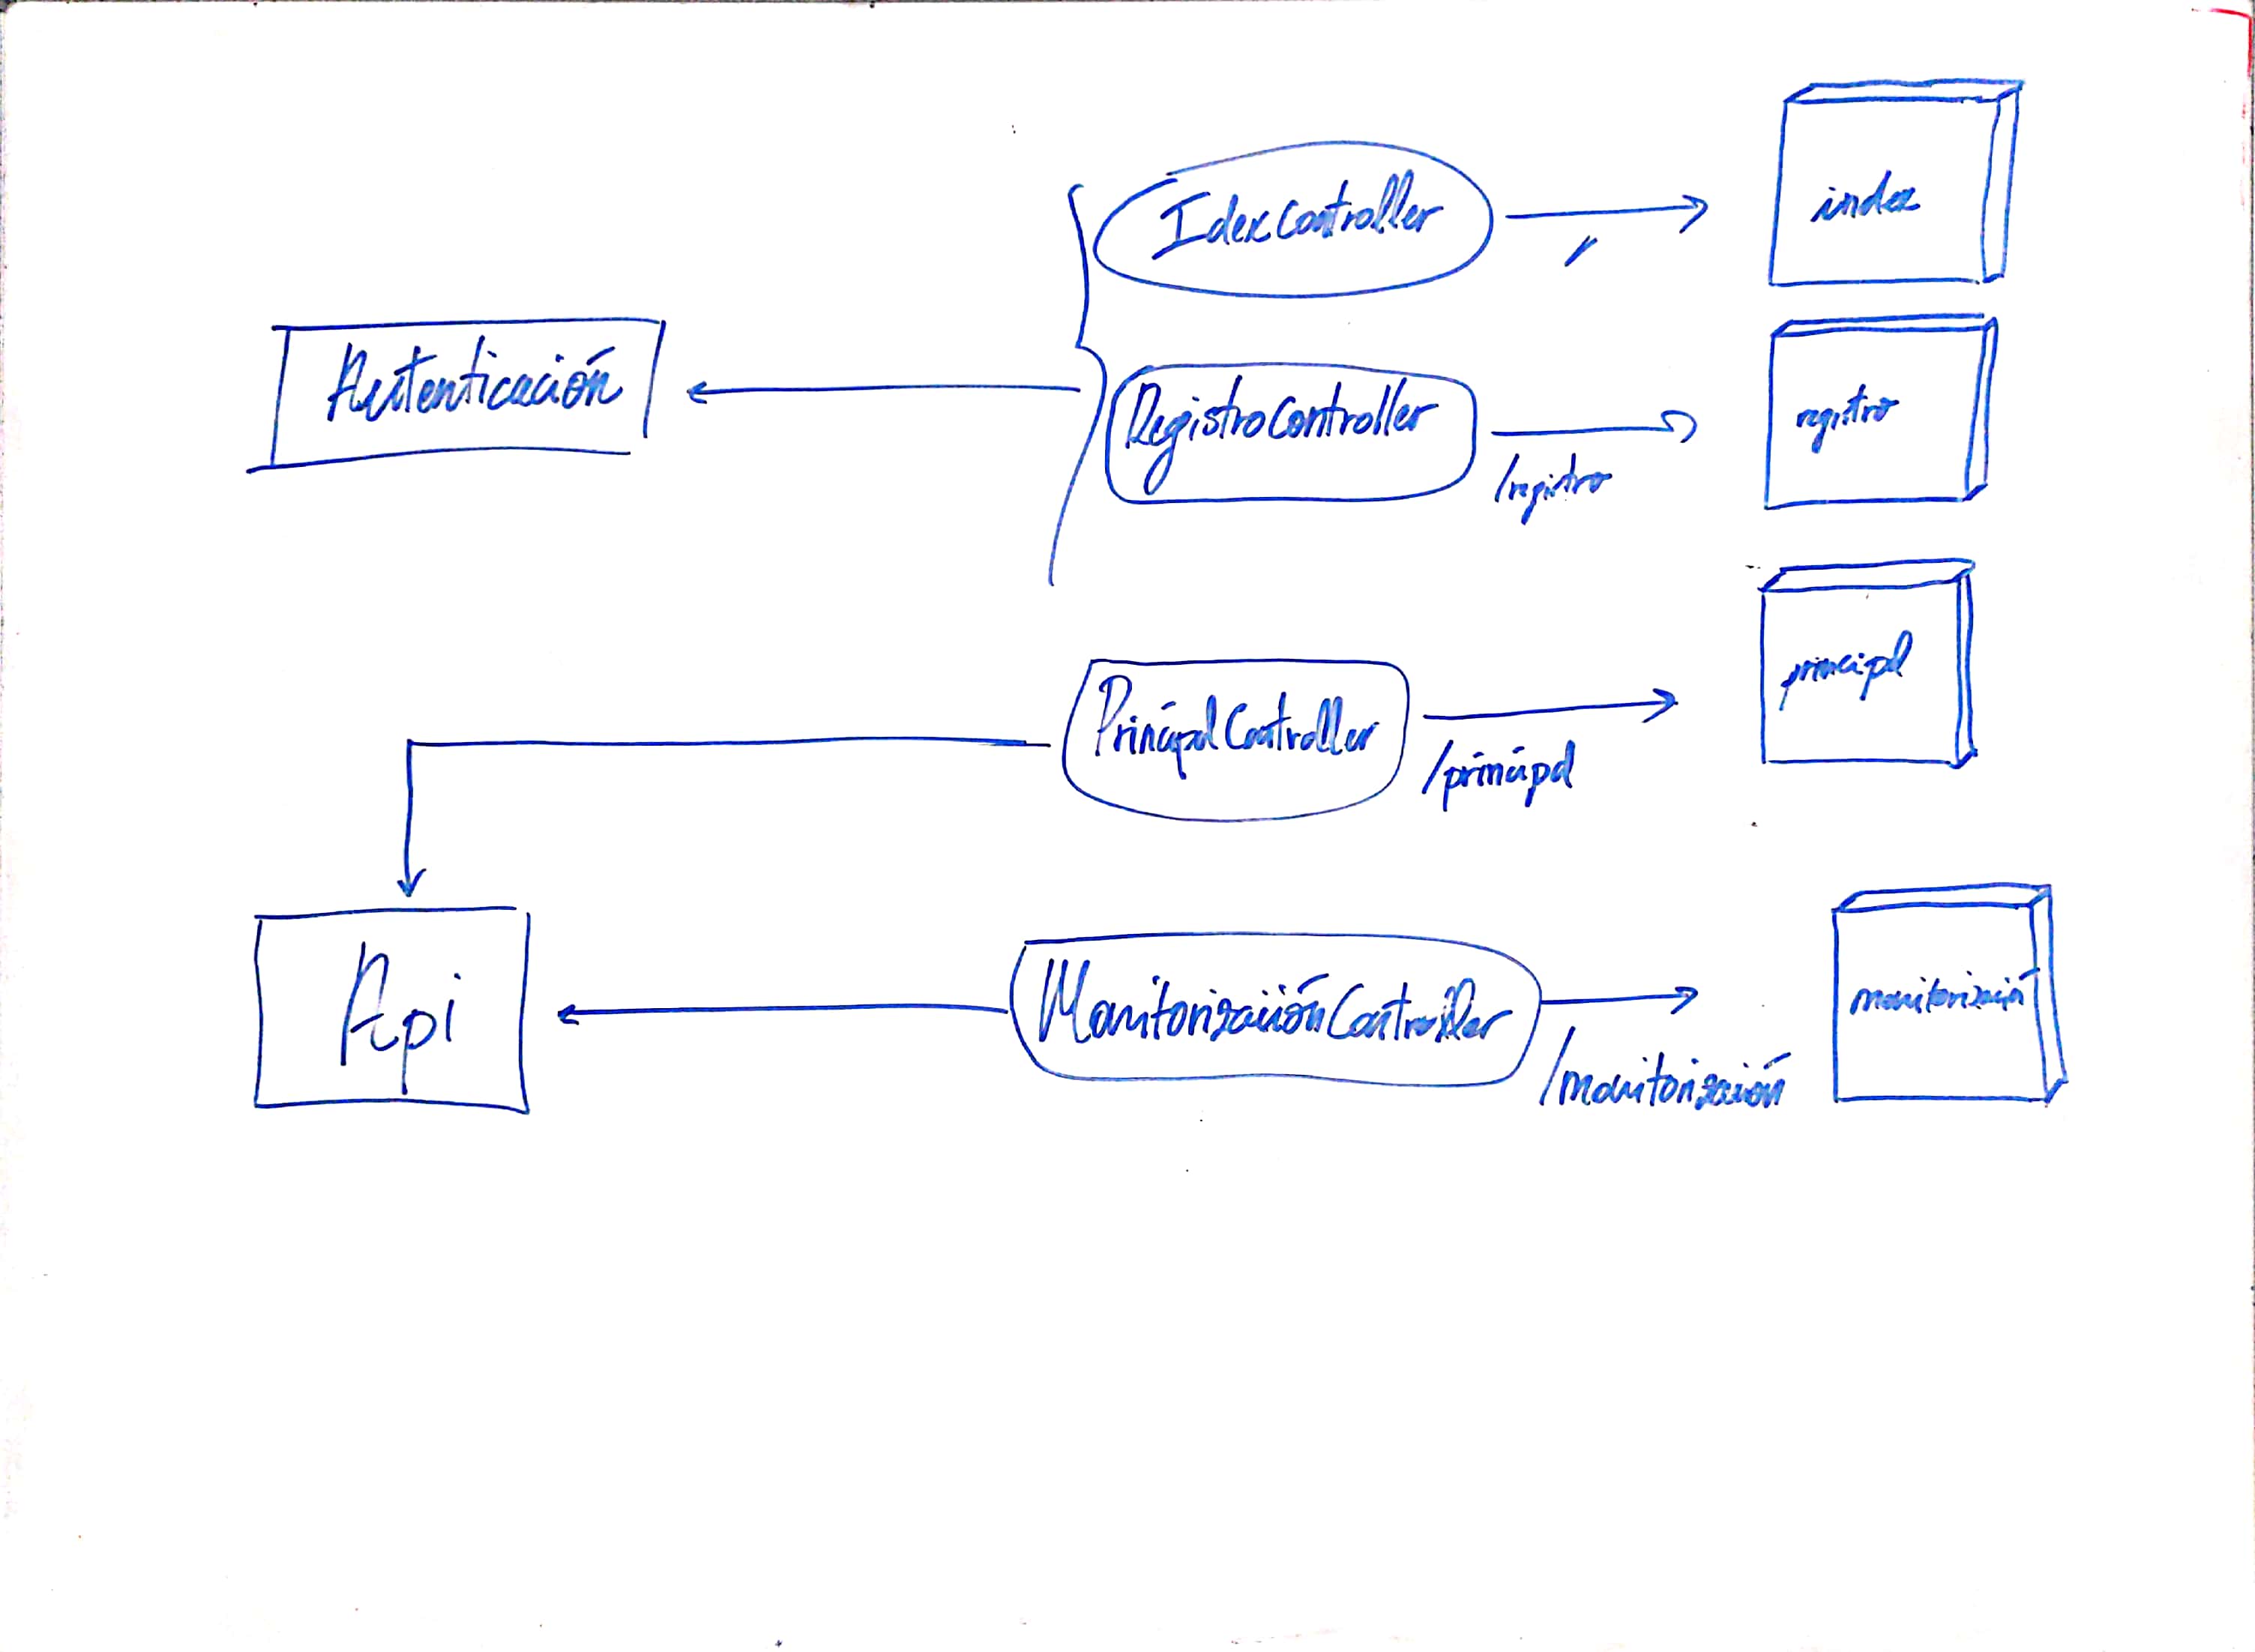 IdexController
/
index
Autenticación
RegistroController
/registro
registro
PrincipalController
/principal
principal
Api
MonitorizaciónController
/monitorización
monitorización